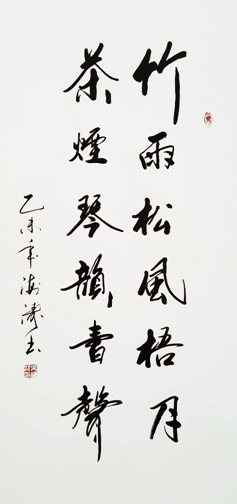 竹雨松風梧月
茶煙琴韻書聲
乙未年海濤書